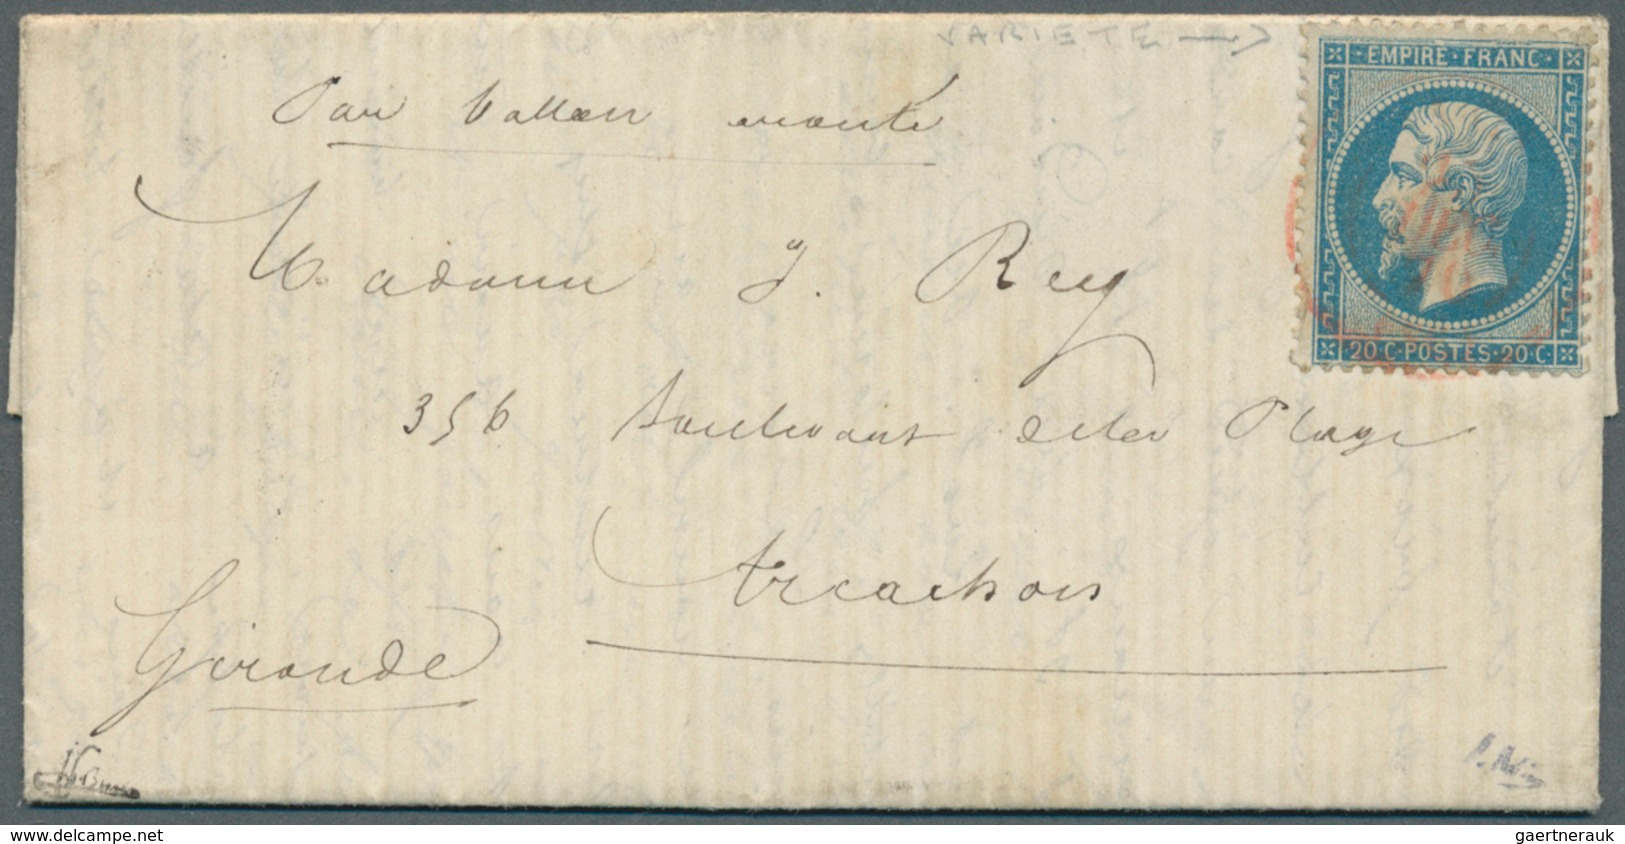 VARIETE →
EMPIRE · FRANC ·
20 · C · POSTES · 20 · C ·
Par ballon monté
Madame J. Rey
356 Boulevart de la Plage
Arcachon
Gironde
www.delcampe.net
gaertnerauk